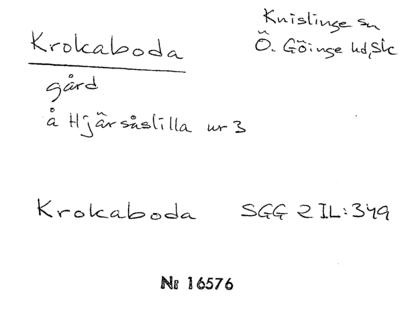 Krokaboda
Knislinge sn
Ö. Göinge hd, Sk
gård
å Hjärsåslilla nr 3
Krokaboda SGG 2 IL:349
Nr 16576